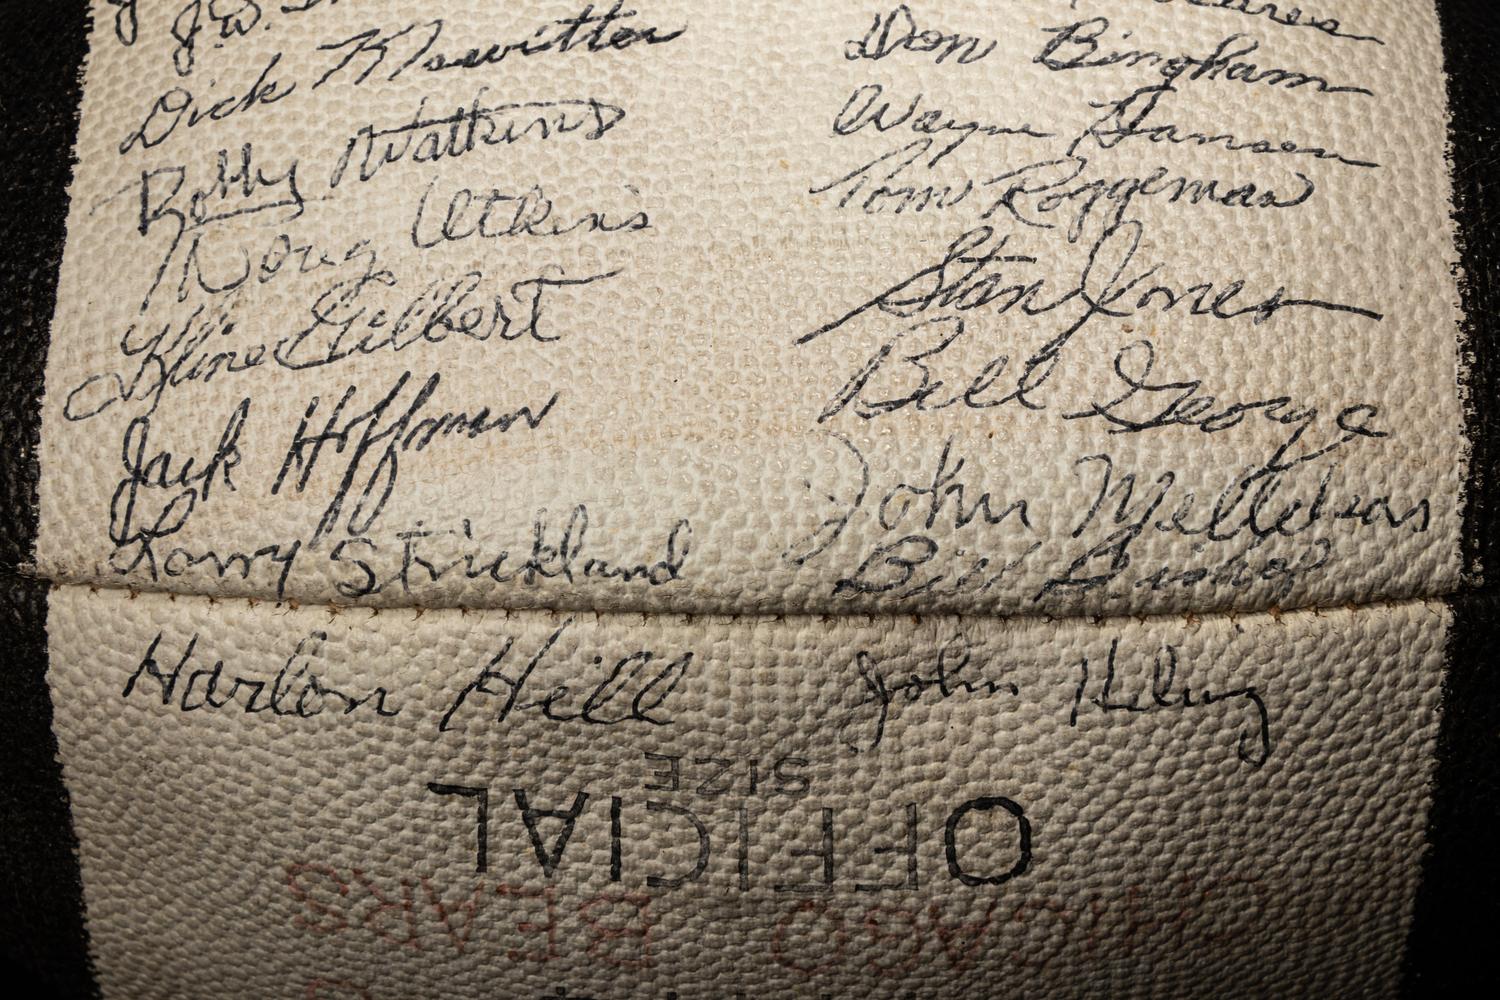 J.W.
Dick Klawitter
Bobby Watkins
Doug Atkins
Kline Gilbert
Jack Hoffman
Larry Strickland
Harlon Hill
Don Bingham
Wayne Hansen
Tom Roggeman
Stan Jones
Bill George
John Mellekas
Bill Bishop
John Helwig
SIZE
OFFICIAL
CHICAGO BEARS